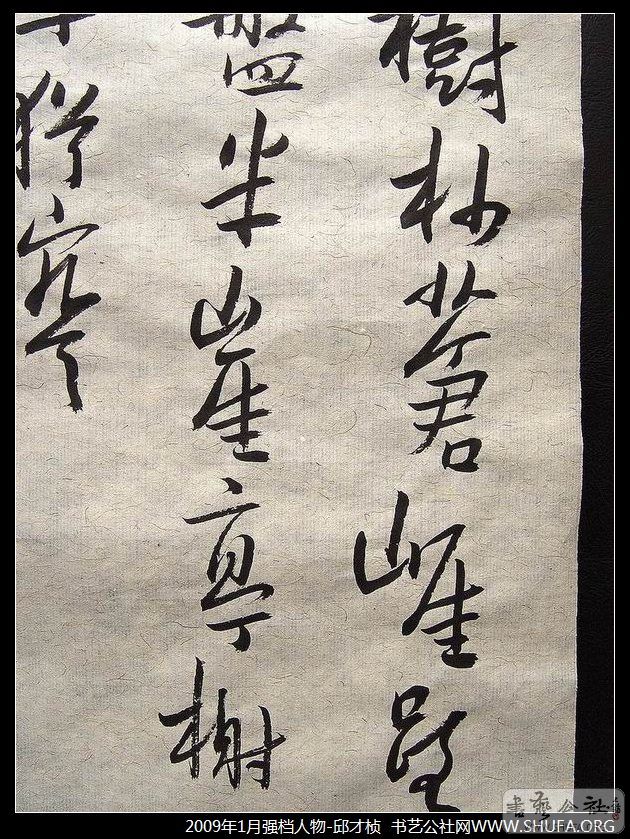 樹杪蒼崖
盤半崖亭榭
猶
2009年1月强档人物-邱才桢 书艺公社网WWW.SHUFA.ORG
書藝公社